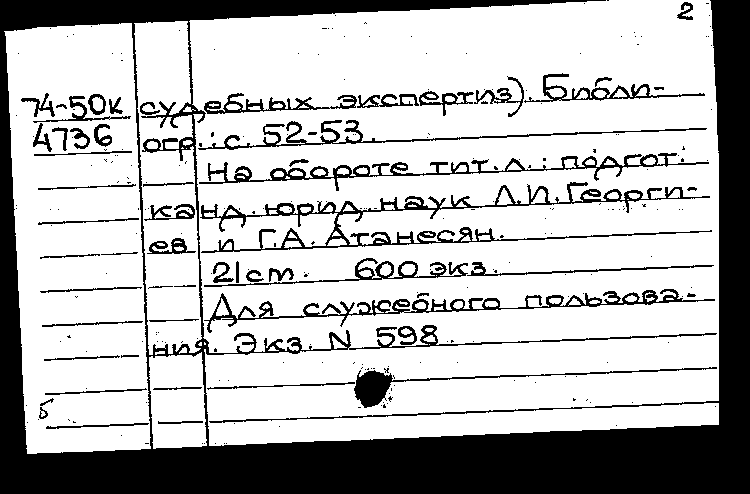 2
74-50к судебных экспертиз). Библи-
4736 огр.: с. 52-53.
На обороте тит. л.: подгот.
канд. юрид. наук Л.И. Георги-
ев и Г.А. Атанесян.
21 см. 600 экз.
Для служебного пользова-
ния. Экз. N 598.
Б